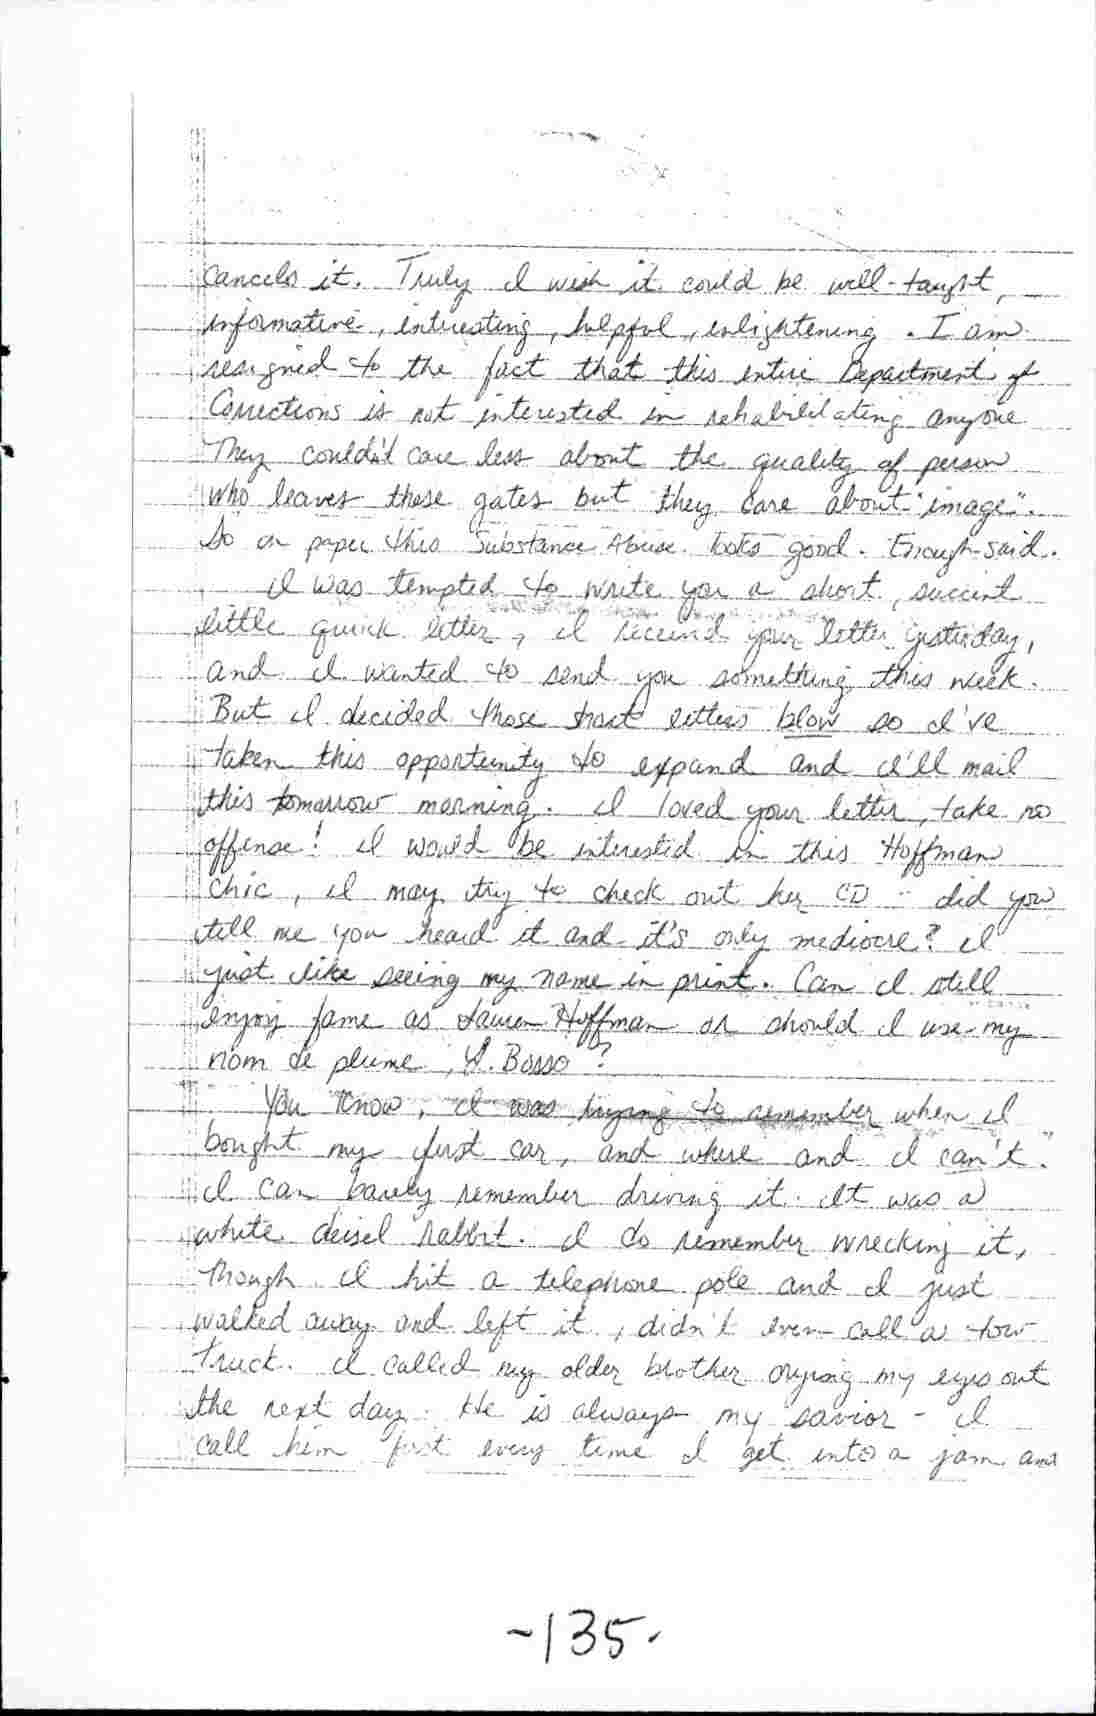 cancels it. Truly I wish it could be well-taught,
informative, interesting, helpful, enlightening. I am
resigned to the fact that this entire Department of
Corrections is not interested in rehabilitating anyone
They could'nt care less about the quality of person
who leaves these gates but they care about "image".
So on paper this Substance Abuse looks good. Enough said.
I was tempted to write you a short, succint
little quick letter, I received your letter yesterday,
and I wanted to send you something this week.
But I decided those short letters blow so I've
taken this opportunity to expand and I'll mail
this tomarrow morning. I loved your letter, take no
offense! I would be interested in this Hoffman
chic, I may try to check out her CD - did you
tell me you heard it and it's only mediocre? I
just like seeing my name in print. Can I still
enjoy fame as Lauren Hoffman or should I use my
nom de plume, Bosso?
You know, I was trying to remember when I
bought my first car, and where and I can't.
I can barely remember driving it. It was a
white deisel rabbit. I do remember wrecking it,
though I hit a telephone pole and I just
walked away and left it, didn't even call a tow
truck. I called my older brother crying my eyes out
the next day. He is always my savior - I
call him first every time I get into a jam and
-135-